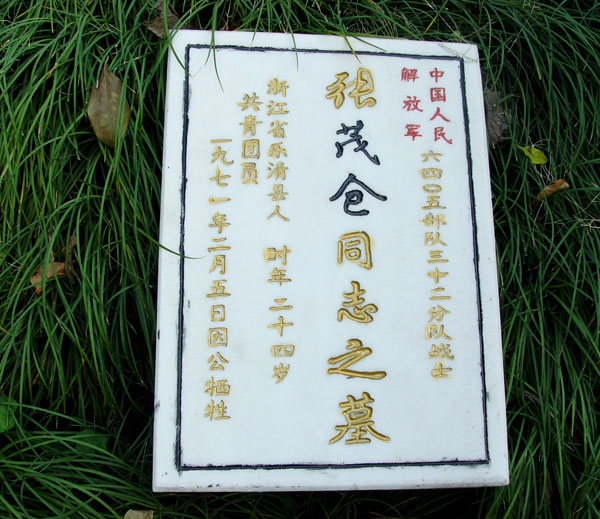 中国人民
解放军
六四〇五部队三十二分队战士
张茂仓同志之墓
浙江省乐清县人 时年二十四岁
共青团员
一九七一年二月五日因公牺牲